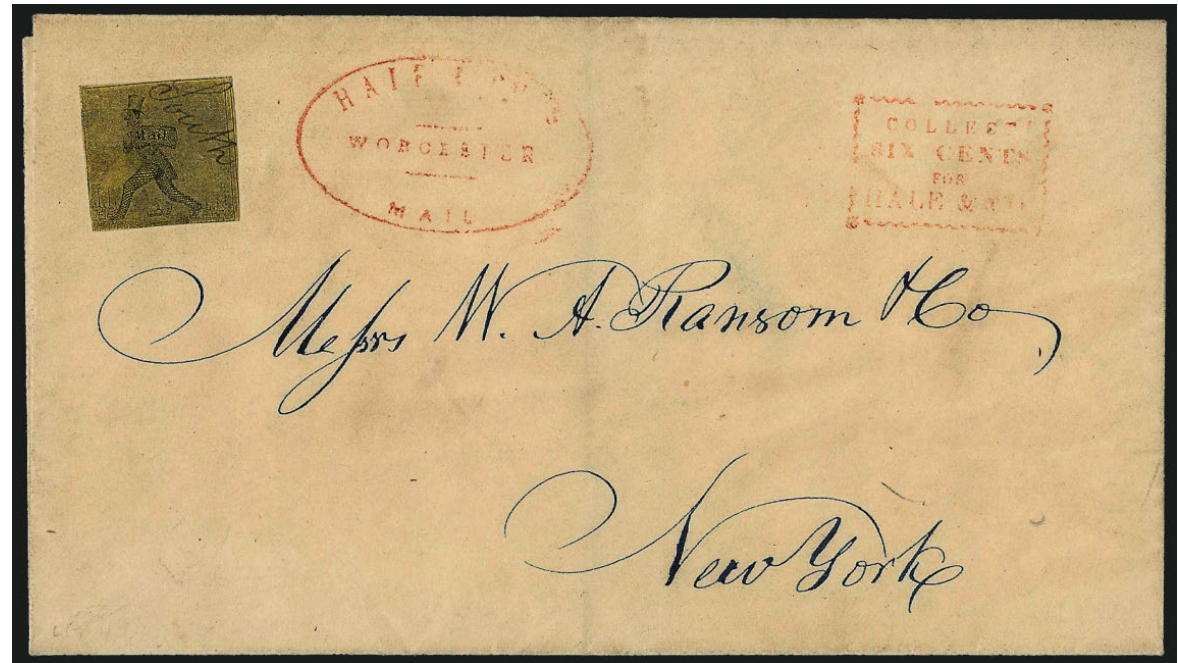 South
Mail
HALE & CO'S
WORCESTER
MAIL
COLLECT
SIX CENTS
FOR
HALE & CO.
Messrs W. A. Ransom & Co
New York